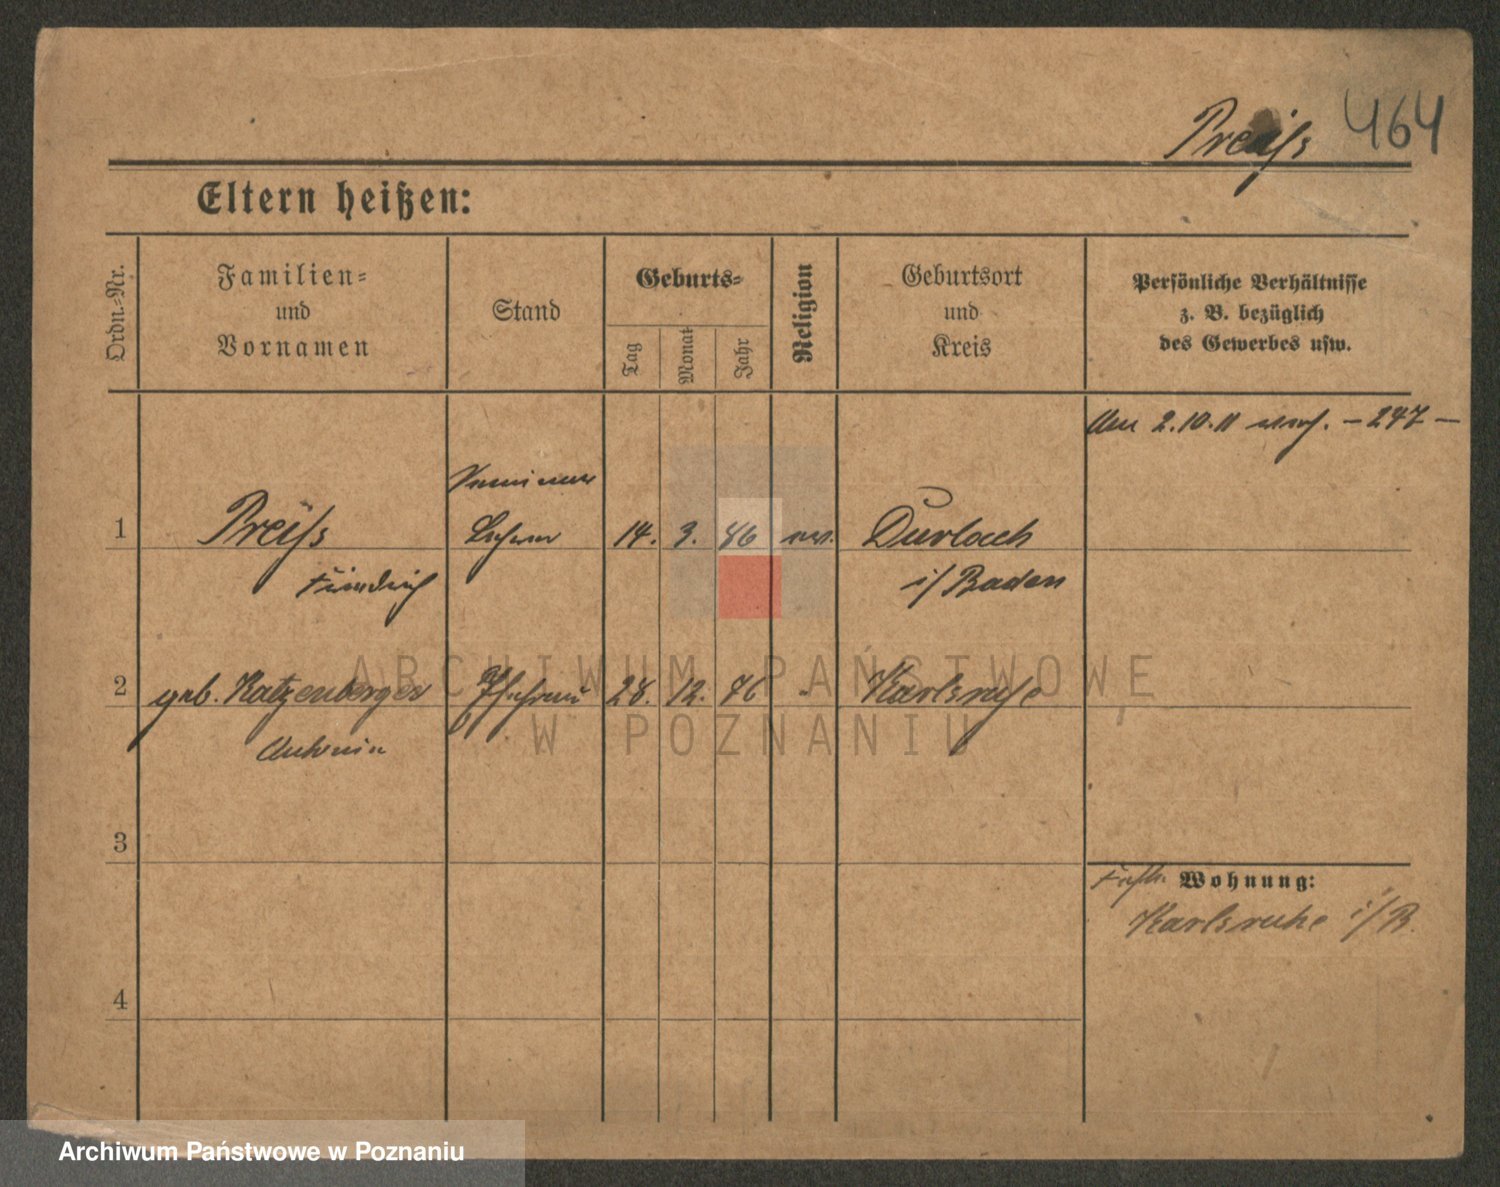 Preiß 464
Eltern heißen:
Ordn.-Nr.
Familien-
und
Vornamen
Stand
Geburts-
Tag
Monat
Jahr
Religion
Geburtsort
und
Kreis
Persönliche Verhältnisse
z. B. bezüglich
des Gewerbes usw.
2.10.11 - 247 -
1 Preiß Lehrer 14. 3. 86 Durlach
Friedrich i/Baden
2 geb. Katzenberger Ehefrau 28. 12. 76 Karlsruhe
Antonin
3
Wohnung:
Karlsruhe i/B.
4
ARCHIWUM PAŃSTWOWE
W POZNANIU
Archiwum Państwowe w Poznaniu